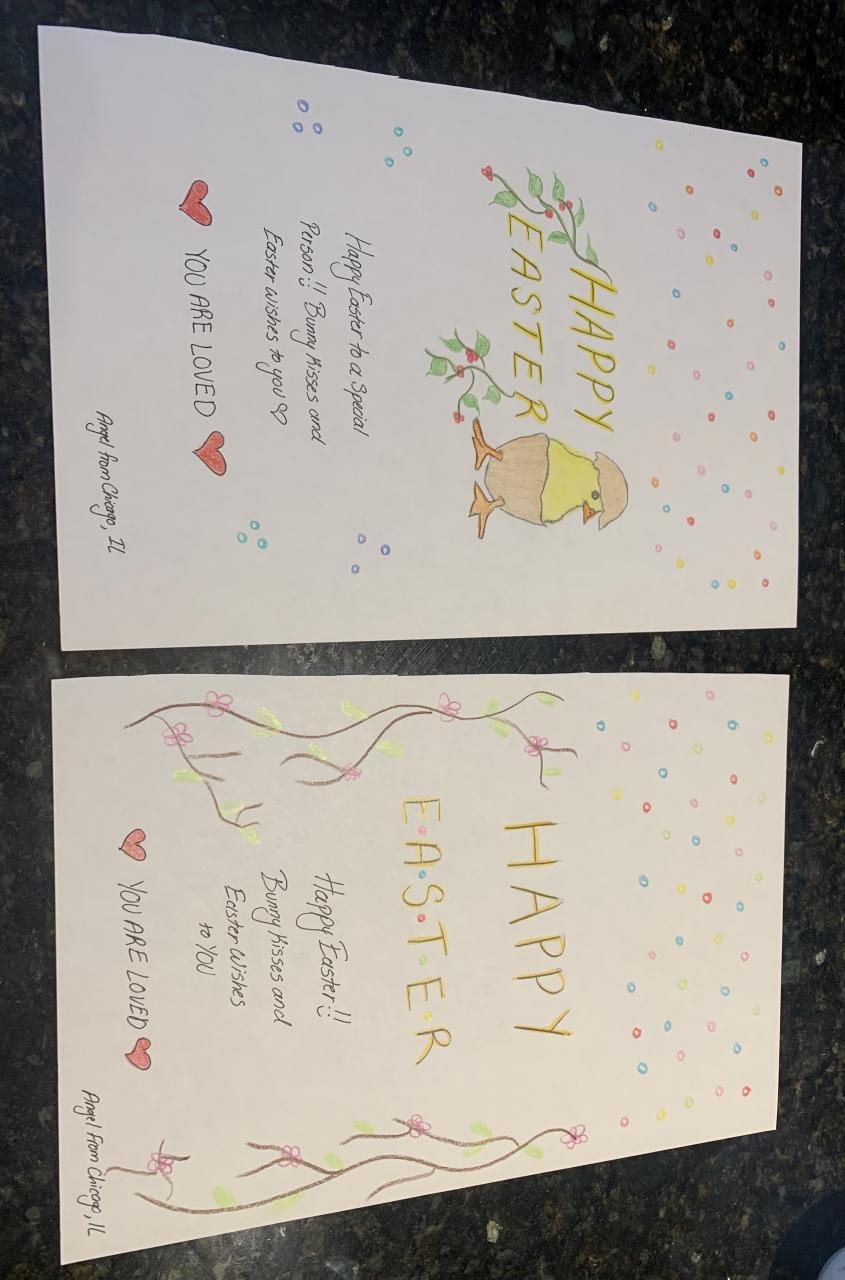 HAPPY
EASTER
Happy Easter to a Special
Person!! Bunny Kisses and
Easter wishes to you ♡
♥ YOU ARE LOVED ♥
Angel from Chicago, IL
HAPPY
E.A.S.T.E.R
Happy Easter!!
Bunny Kisses and
Easter Wishes
to YOU
♥ YOU ARE LOVED ♥
Angel from Chicago, IL